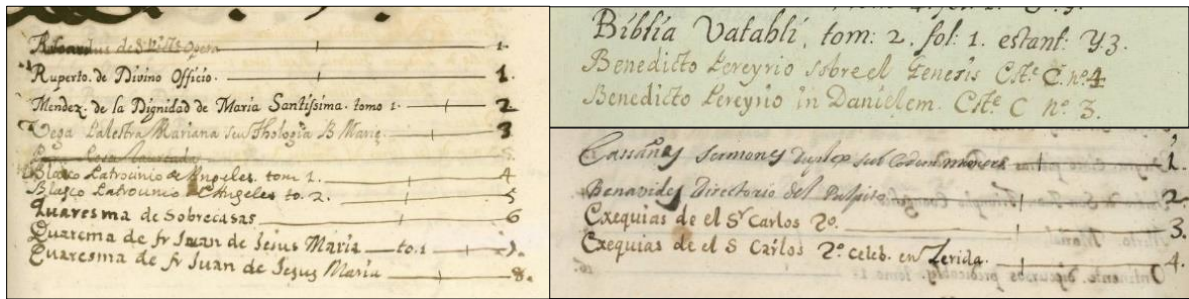 Ricardus de S. Victe Opera 1.
Ruperto. de Divino Officio. 1.
Mendez. de la Dignidad de Maria Santissima. tomo 1. 2
Vega Palestra Mariana seu Thologia B Marie 3
Blasco Patrocinio de Angeles. tom 1. 4
Blasco Patrocinio Angeles to. 2. 5
Quaresma de Sobrecasas 6
Quarema de fr Juan de Jesus Maria to. 1 7.
Quaresma de fr Juan de Jesus Maria 8.
Biblia Vatabli, tom: 2. fol: 1. estant: Y.3.
Benedicto Pereyrio sobre el Genesis Cste C. nº 4
Benedicto Pereyrio in Danielem. Cste C nº 3.
Sermones Duplex sub eodem numero 1.
Benavides Directorio del Pulpito 2.
Exequias de el Sr Carlos 2º. 3.
Exequias de el S Carlos 2º. celeb. en Lerida. 4.